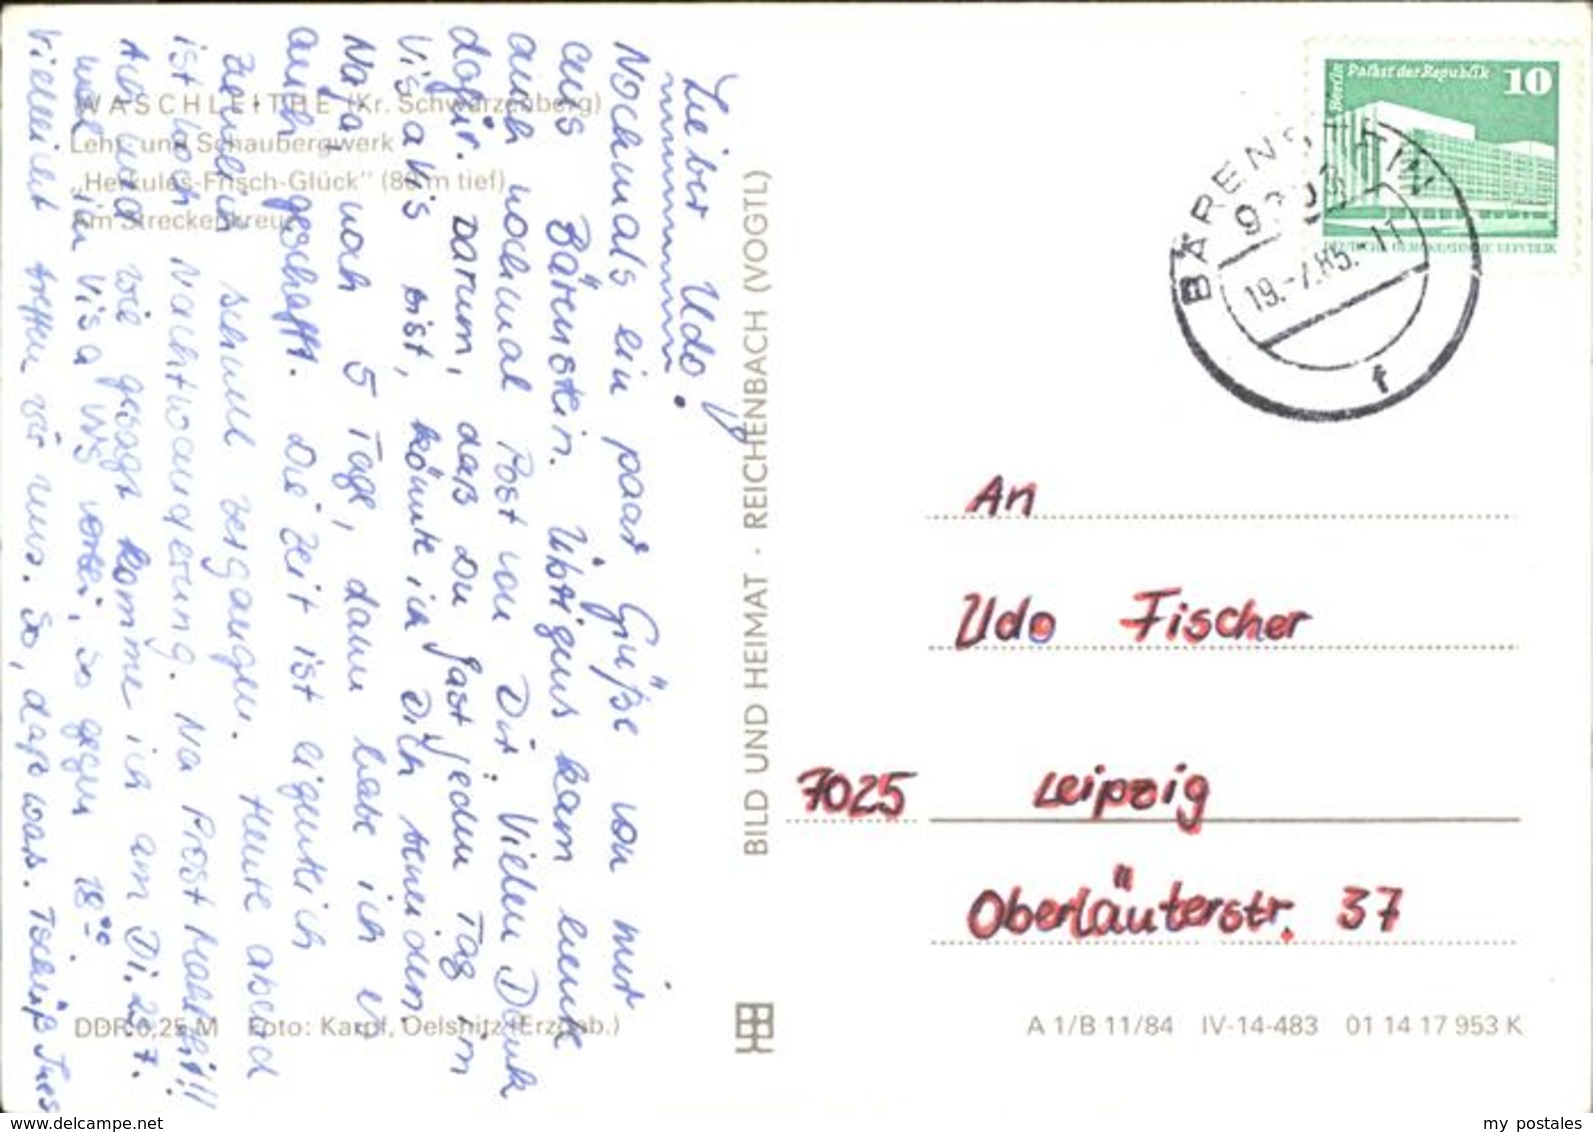 WASCHLEITHE (Kr. Schwarzenberg)
Lehr- und Schaubergwerk
„Herkules-Frisch-Glück" (80 m tief)
Am Streckenkreuz
Lieber Udo!
Nochmals ein paar Grüße von mir
aus Bärenstein. Übrigens kam heute
auch nochmal Post von Dir. Vielen Dank
dafür. Darum, daß Du fast jeden Tag im
Vis à Vis bist, könnte ich Dich beneiden.
Naja noch 5 Tage, dann habe ich es
auch geschafft. Die Zeit ist eigentlich
ziemlich schnell vergangen. Heute abend
ist noch Nachtwanderung. Na Prost Mahlzeit!!!
Also und wie gesagt komme ich am Di.
mal im Vis a Vis vorbei, so gegen 18⁰⁰.
Vielleicht treffen wir uns. So, das was. Tschüß Ines
BILD UND HEIMAT · REICHENBACH (VOGTL)
Berlin
Palast der Republik
10
DEUTSCHE DEMOKRATISCHE REPUBLIK
BÄRENSTEIN
19.-7.85.-11
f
An
Udo Fischer
7025 Leipzig
Oberläuterstr. 37
DDR 0,25 M Foto: Karpf, Oelsnitz (Erzgeb.)
A 1/B 11/84 IV-14-483 01 14 17 953 K
www.delcampe.net
my postales